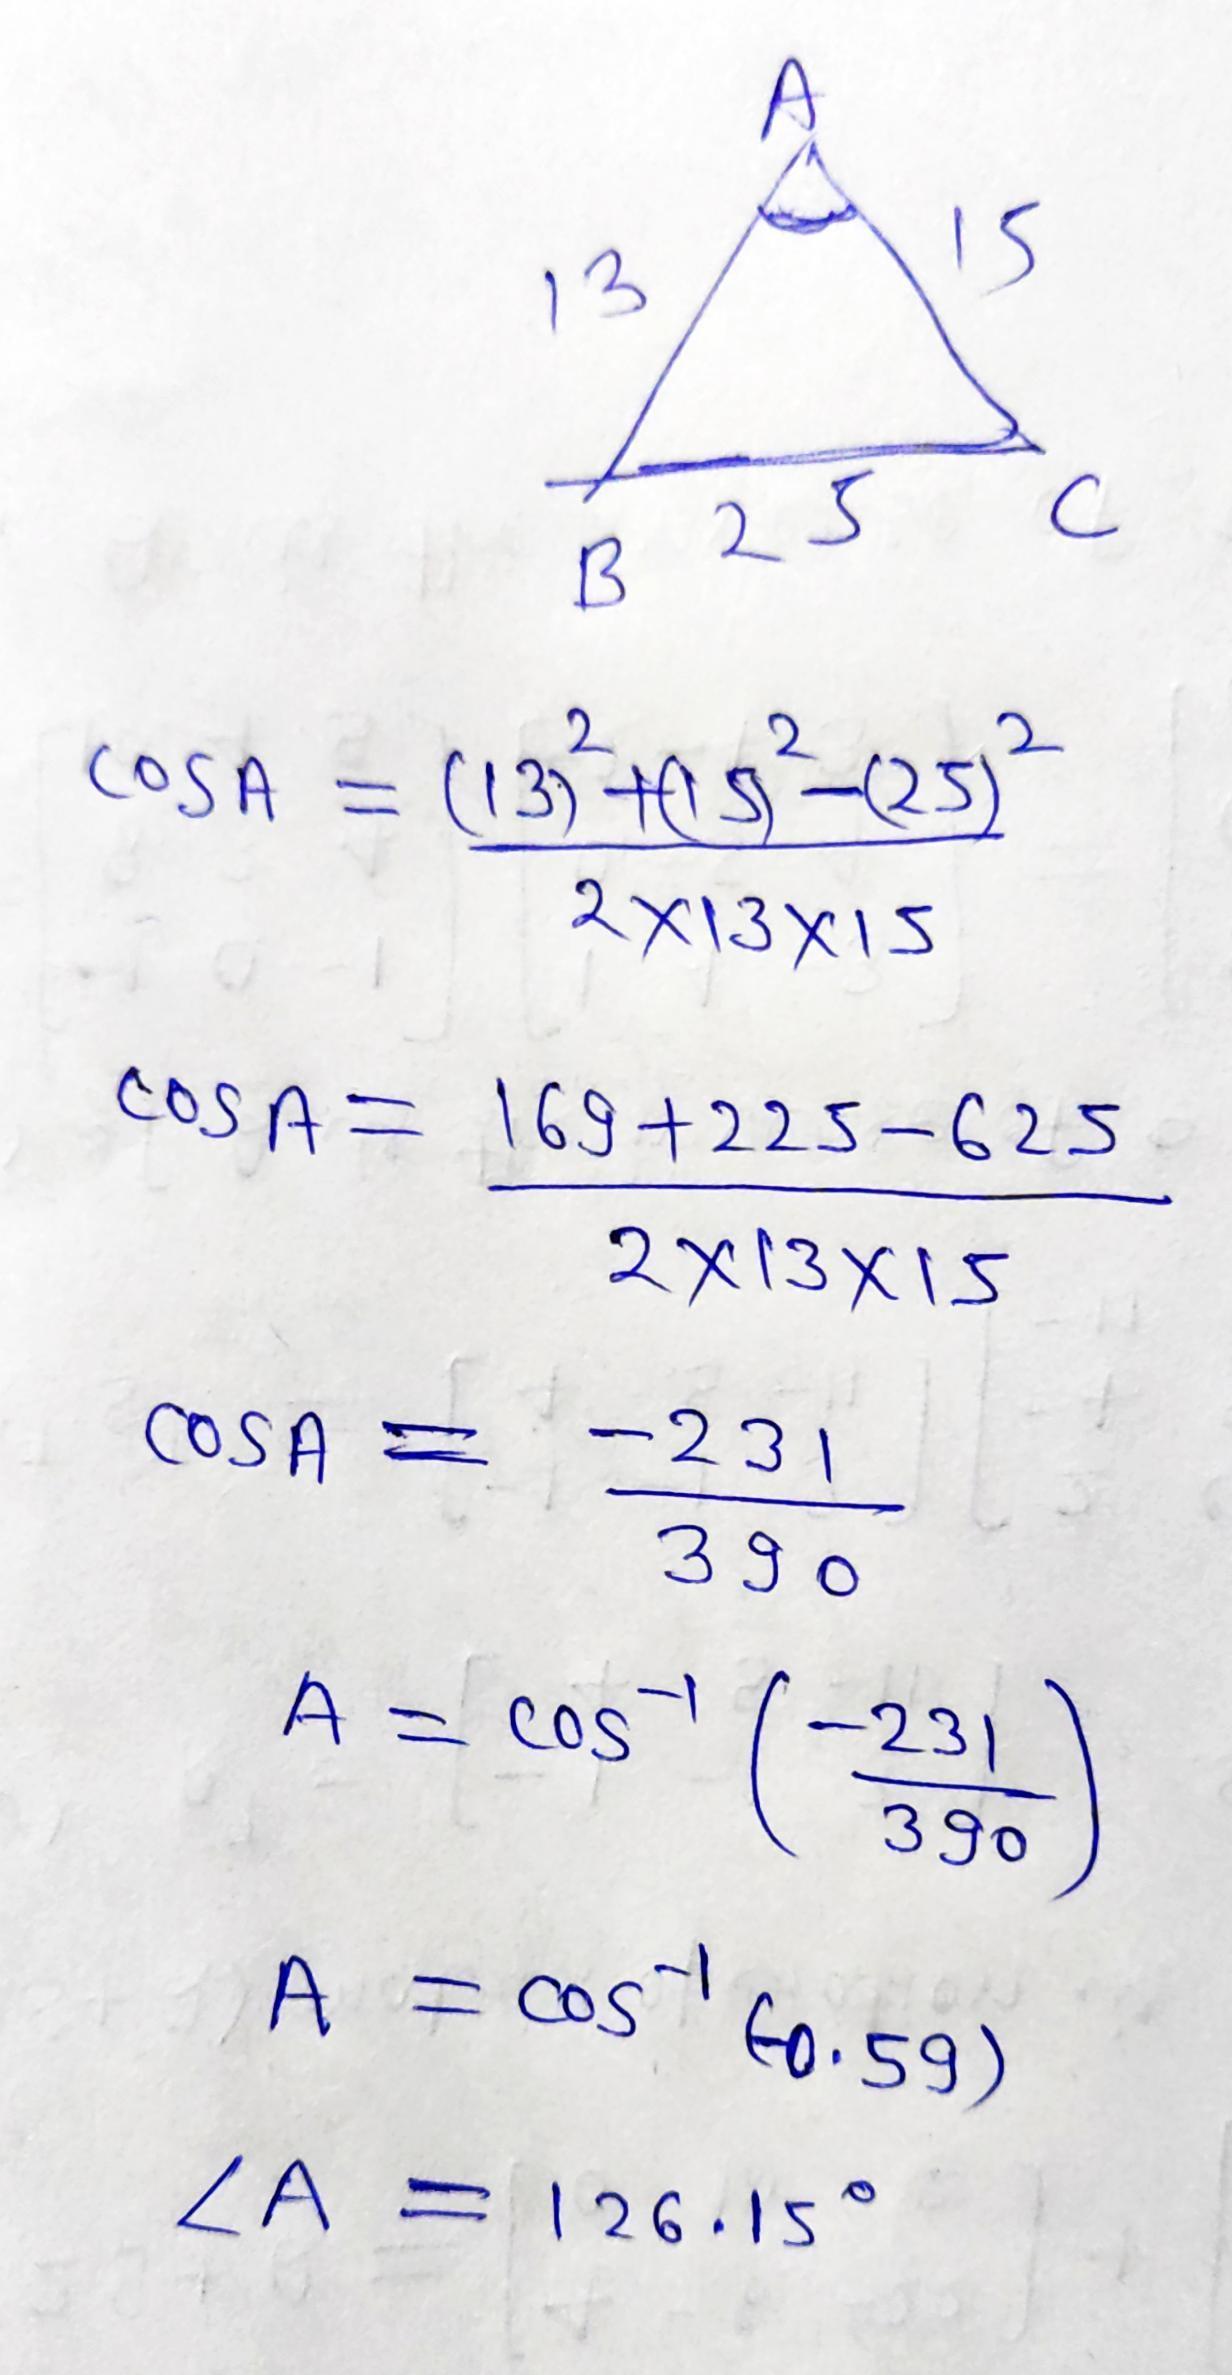 A
13
15
B
25
C
cosA = (13)²+(15)²-(25)²
2×13×15
cosA = 169+225-625
2×13×15
cosA = -231
390
A = cos⁻¹ (-231
390)
A = cos⁻¹ (-0.59)
∠A = 126.15°